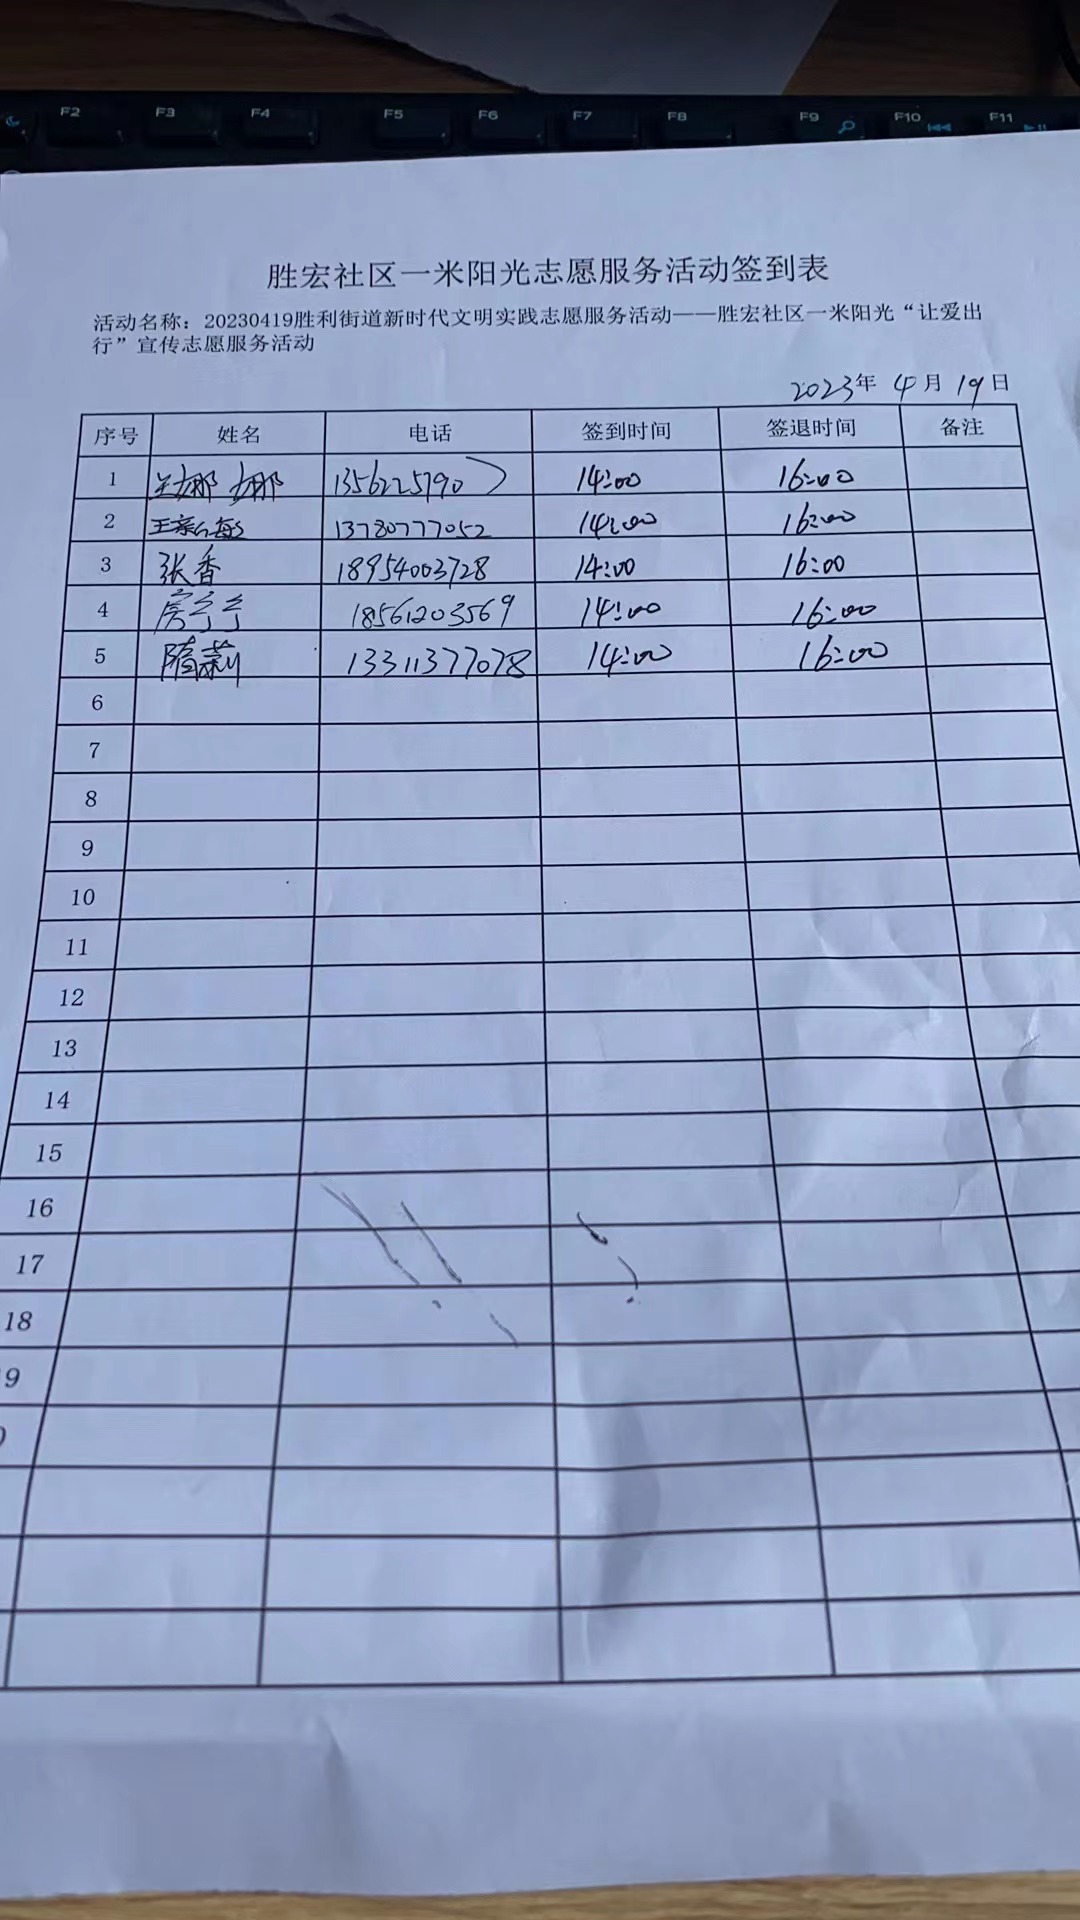 F2 F3 F4 F5 F6 F7 F8 F9 F10 F11
胜宏社区一米阳光志愿服务活动签到表
活动名称：20230419胜利街道新时代文明实践志愿服务活动——胜宏社区一米阳光“让爱出
行”宣传志愿服务活动
2023年 4月 19日
序号 姓名 电话 签到时间 签退时间 备注
1 娜娜 14:00 16:00
2 13780777052 14:00 16:00
3 张香 18954003728 14:00 16:00
4 房 18561203569 14:00 16:00
5 隋莉 13311377078 14:00 16:00
6
7
8
9
10
11
12
13
14
15
16
17
18
9